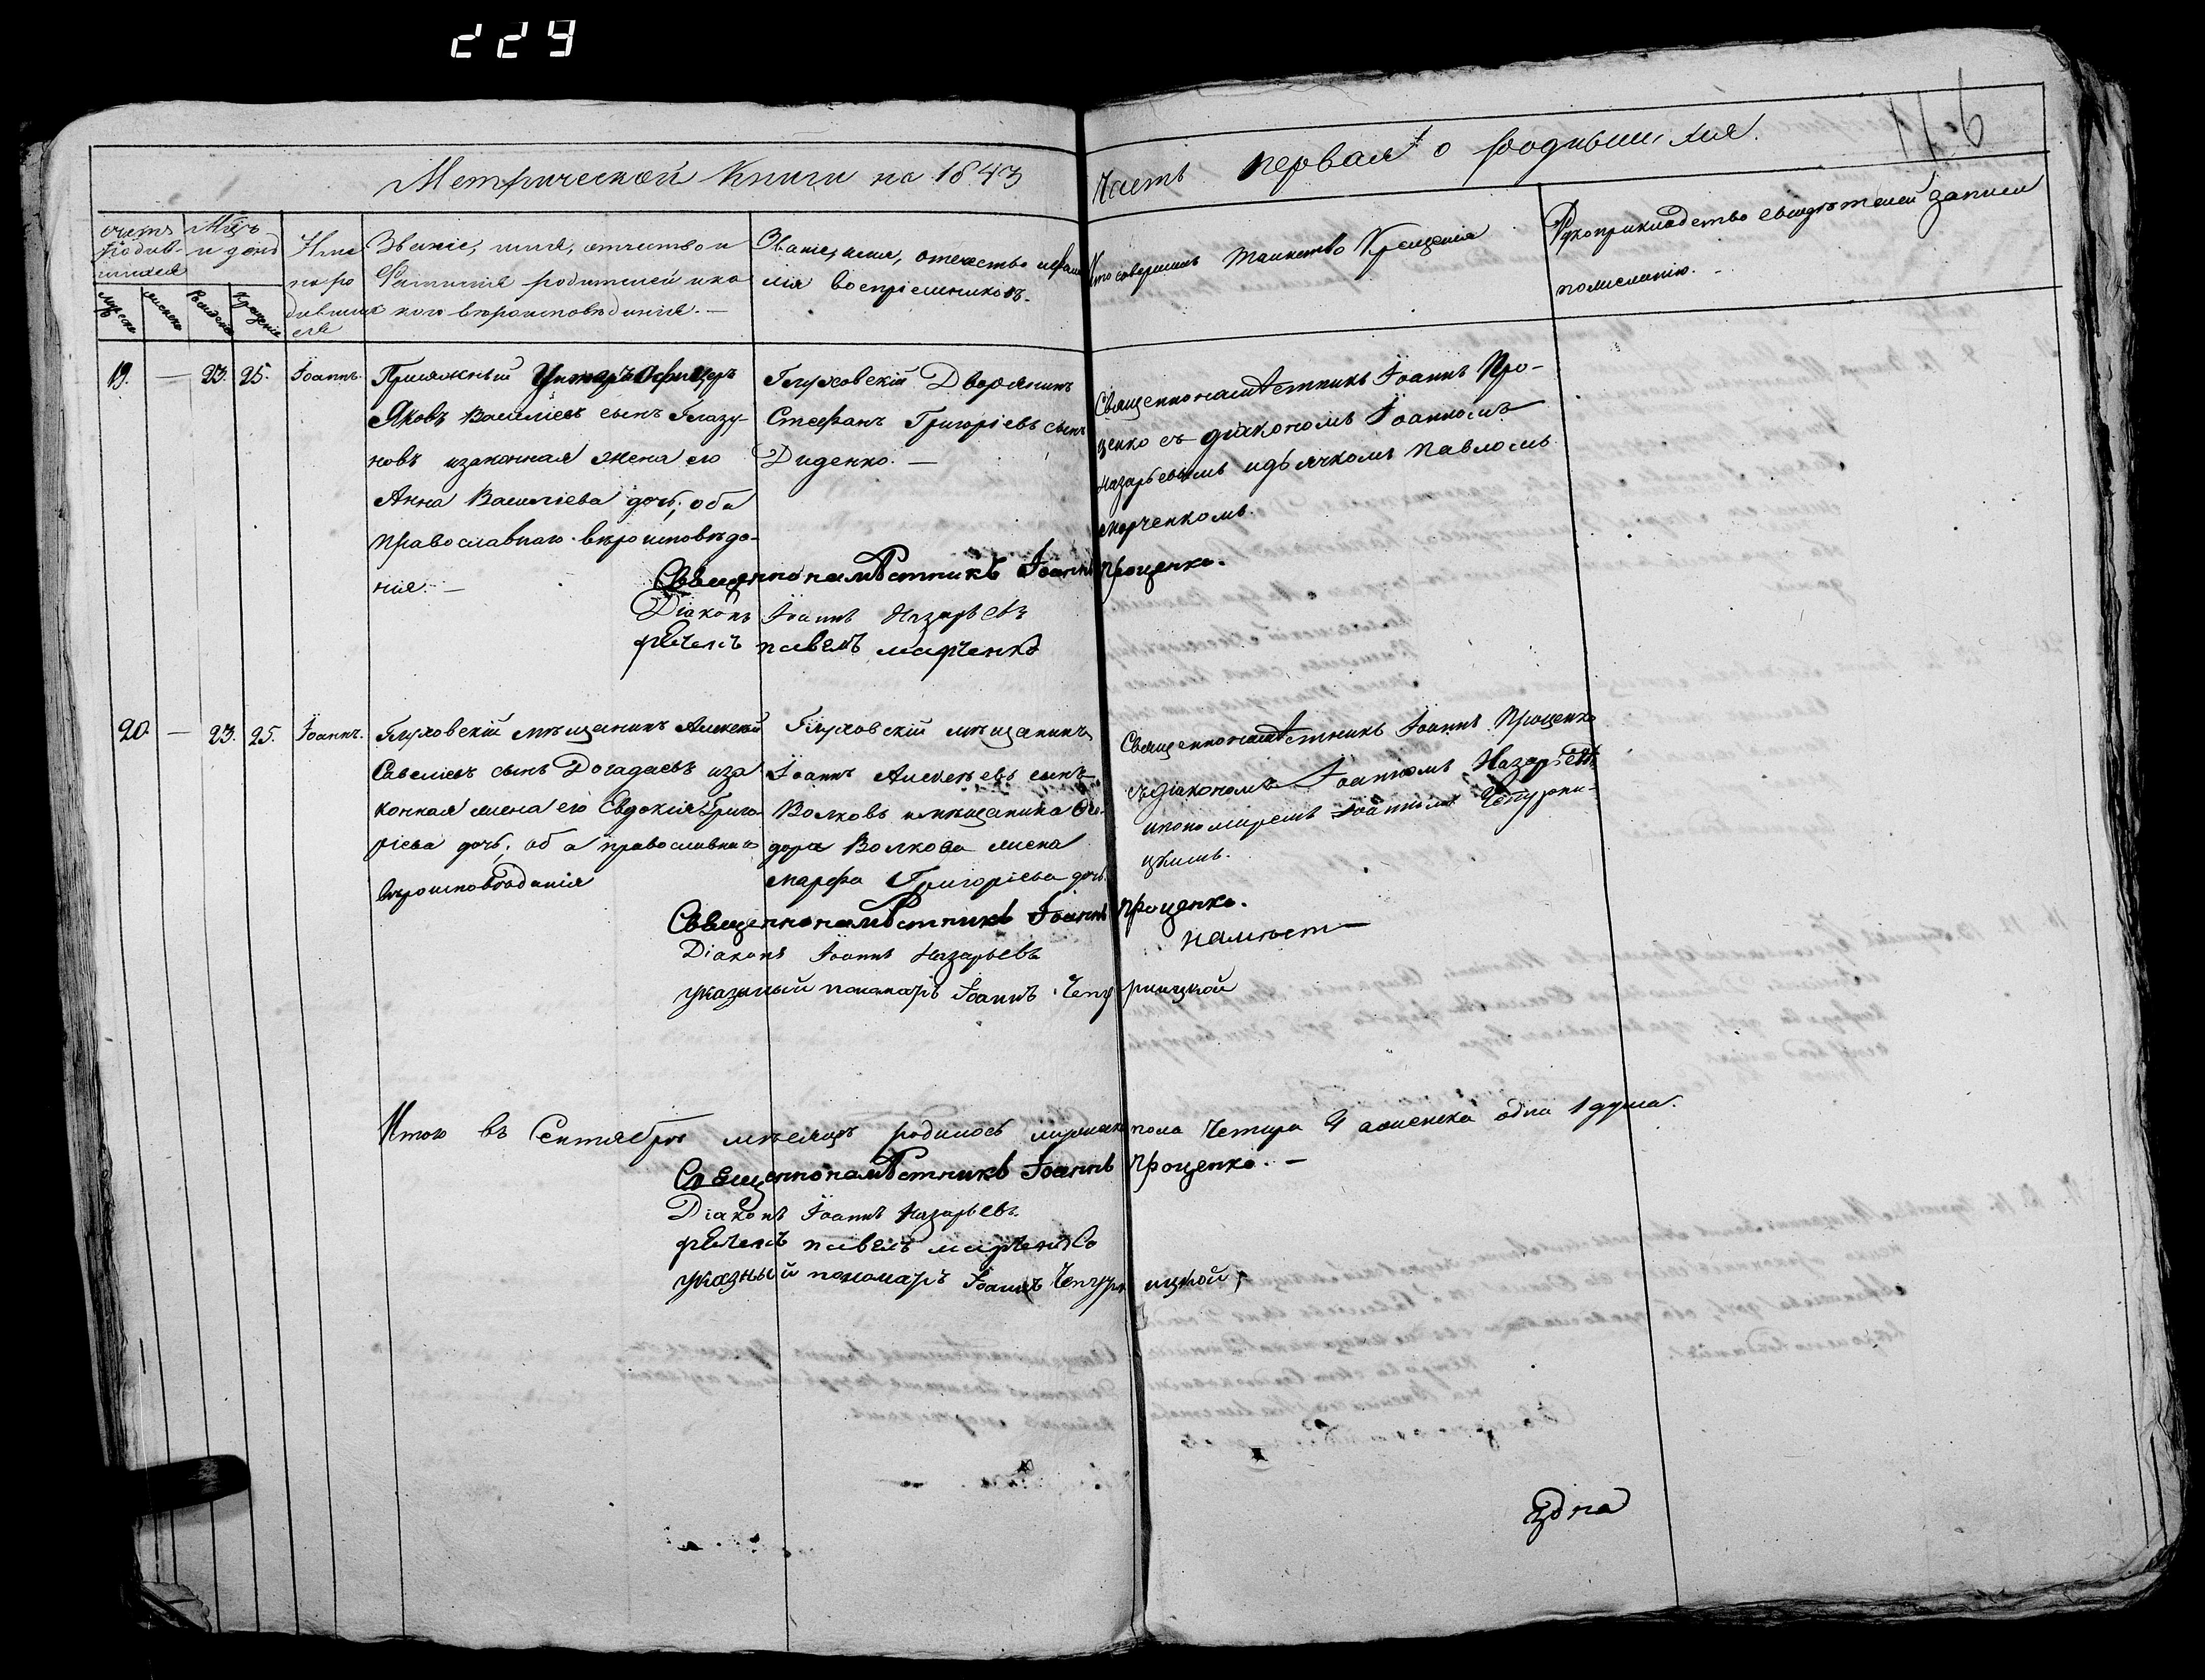 229
116
Метрической Книги на 1843
Часть первая о родившихся.
счетъ родив-шихся
Мцъ и день
Име на ро дивших ся
Званіе, имя, отчество и
Фамилія родителей и ка
кого вѣроисповѣданія. —
Званіе, имя, отечество и фами
лія воспріемниковъ.
Кто совершалъ таинство Крещенія
Рукоприкладство свидѣтелей записи
по желанію. -
мужеска
женска
Рожденія
Крещенія
19. — 23. 25. Іоаннъ.
Присяжный Унтеръ Офицеръ
Яковъ Василіевъ сынъ Глазу-
новъ и законная жена его
Анна Василіева дочь; оба
православнаго вѣроисповѣда-
нія. —
Глуховскій Дворянинъ
Стефанъ Григоріевъ сынъ
Диденко. —
Священнонамѣстникъ Іоаннъ Про-
ценко съ діакономъ Іоанномъ
Назарьевымъ и дьячкомъ Павломъ
Марченкомъ.
Священнонамѣстникъ Іоаннъ Проценко.
Діаконъ Іоаннъ Назарьевъ
дьячекъ павелъ марченко
20. — 23. 25. Іоаннъ.
Глуховскій мѣщанинъ Алексѣй
Савеліевъ сынъ Догадаевъ и за
конная жена его Евдокія Григо
ріева дочь; оба православнаго
вѣроисповѣданія
Глуховскій мѣщанинъ
Іоаннъ Алексѣевъ сынъ
Волковъ и мѣщанина Ѳе-
дора Волкова жена
Марфа Григоріева дочь.
Священнонамѣстникъ Іоаннъ Проценко
съ діакономъ Іоанномъ Назарьевъ
и пономаремъ Іоанномъ Чепурни-
цкимъ.
Священнонамѣстникъ Іоаннъ Проценко.
намѣст—
Діаконъ Іоаннъ Назарьевъ
указный пономарь Іоаннъ Чепурницкой
Итого въ Сентябрѣ мѣсяцѣ родилось мужеска пола четыри 4 а женска одна 1 душа.
Священнонамѣстникъ Іоаннъ Проценко. —
Діаконъ Іоаннъ Назарьевъ.
дьячекъ павелъ марченко
указный пономарь Іоаннъ Чепурницкой